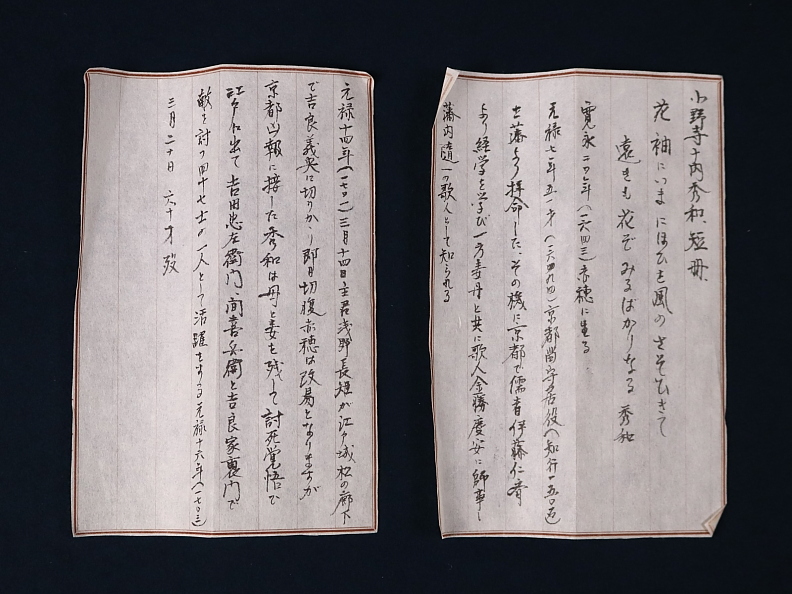 小野寺十内秀和短冊
花 袖にいま にほひを風の さそひきて
遠きも花ぞ みるばかりなる 秀和
寛永二〇年(一六四三)赤穂に生る
元禄七年五一才(一六九四)京都留守居役(知行一五〇石)
士藩より拝命した、その機に京都で儒者伊藤仁斎
より経学を学び一方妻丹と共に歌人金勝慶安に師事し
藩内随一の歌人として知られる
元禄十四年(一七〇一)三月十四日主君浅野長矩が江戸城松の廊下
で吉良義央に切りかゝり即日切腹 赤穂は改易となりますが
京都で報に接した秀和は母と妻を残して討死覚悟で
江戸に出て吉田忠左衛門、間喜兵衛と吉良家裏門で
敵を討つ四十七士が一人として活躍をする 元禄十六年(一七〇三)
二月二十日 六十才 歿